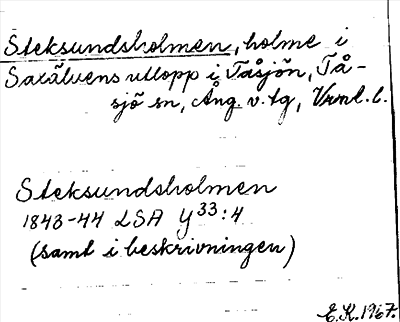 Steksundsholmen, holme i
Saxälvens utlopp i Tåsjön, Tå-
sjö sn, Ång. v. tg, Vrml. l.
Steksundsholmen
1843-44 LSA Y33:4
(samt i beskrivningen)
E.K. 1967.